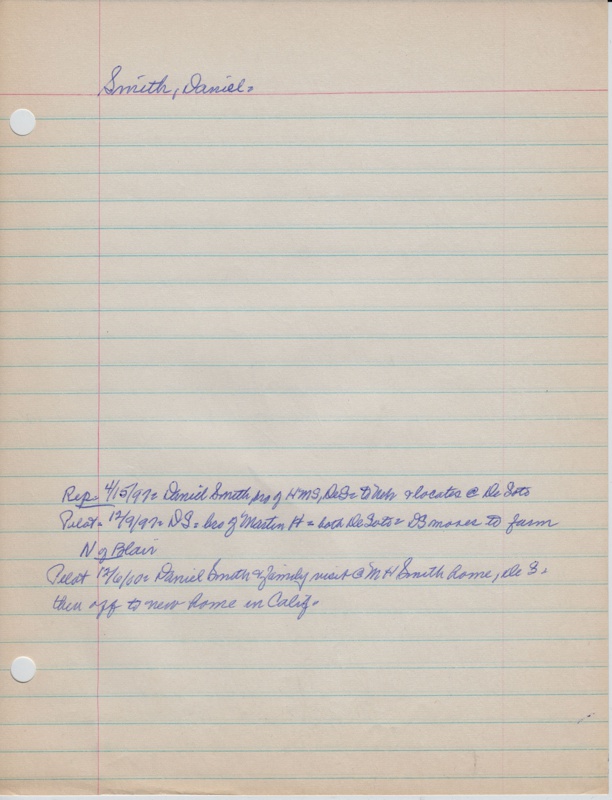 Smith, Daniel =
Rep- 4/15/97= Daniel Smith, bro of HMS, DeS= to Neb & locates @ De Soto
Pilot- 12/9/97= DS= bro of Martin H = both De Soto = DS moves to farm
N of Blair
Pilot 12/6/00= Daniel Smith & family visit @ M H Smith home, De S.
then off to new home in Calif.